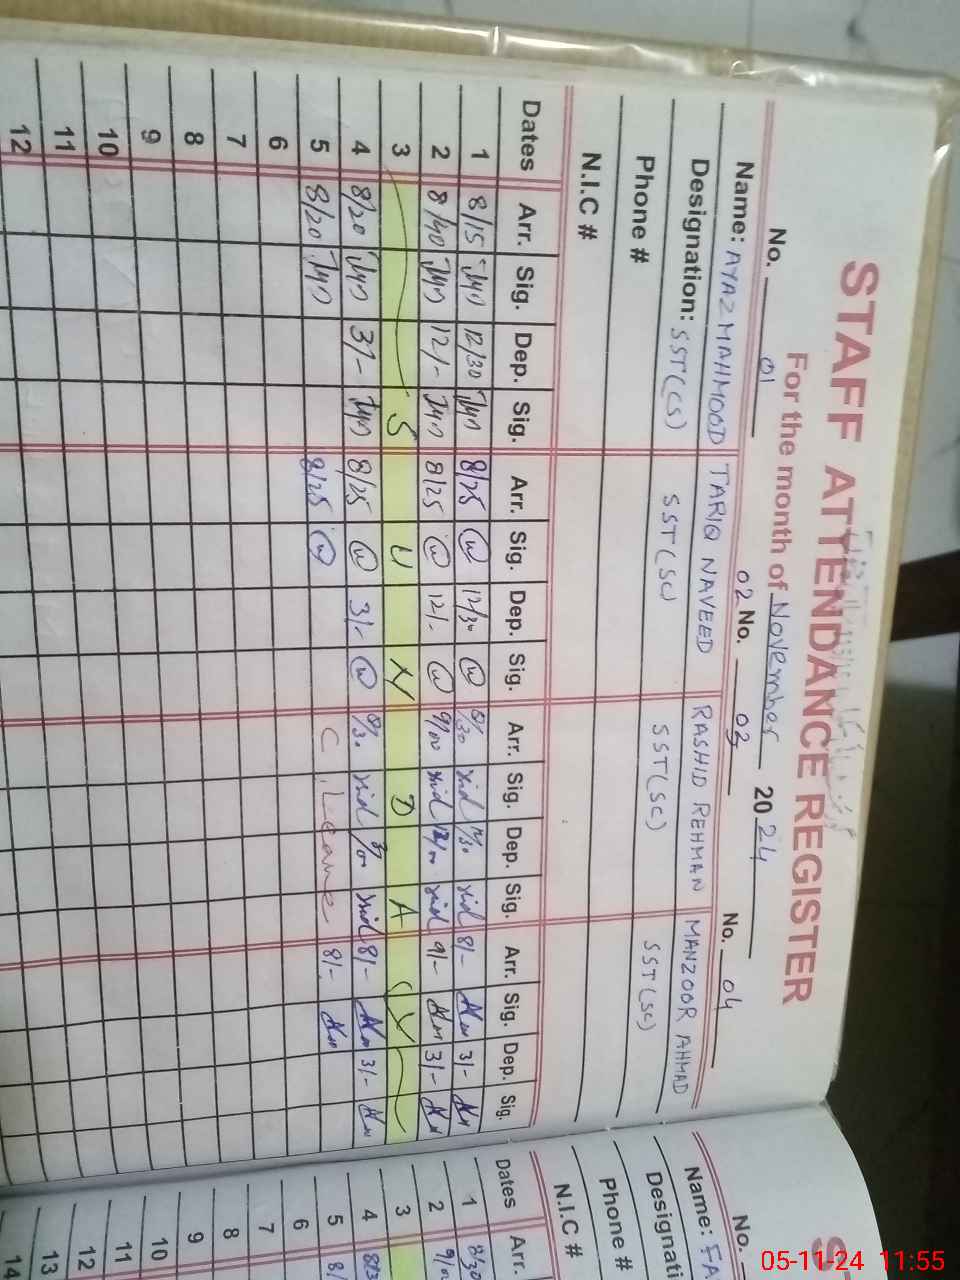 STAFF ATTENDANCE REGISTER
For the month of November 2024
No. 01 02 No. 03 No. 04
Name: AYAZ MAHMOOD TARIQ NAVEED RASHID REHMAN MANZOOR AHMAD
Designation: SST(CS) SST(SC) SST(SC) SST(SC)
Phone #
N.I.C #
Dates Arr. Sig. Dep. Sig. Arr. Sig. Dep. Sig. Arr. Sig. Dep. Sig. Arr. Sig. Dep. Sig.
1 8/15 12/30 8/25 12/30 8/30 12/30 8/- 3/-
2 8/40 12/- 8/25 12/- 9/00 12/00 9/- 3/-
3 S U N D A Y
4 8/20 3/- 8/25 3/- 8/30 3/00 8/- 3/-
5 8/20 8/25 C. Leave 8/-
6
7
8
9
10
11
12
No.
Name: FA
Designati
Phone #
N.I.C #
Dates Arr.
1 8/30
2 9/00
3
4 8/3
5 8/
6
7
8
9
10
11
12
13
14
05-11-24 11:55